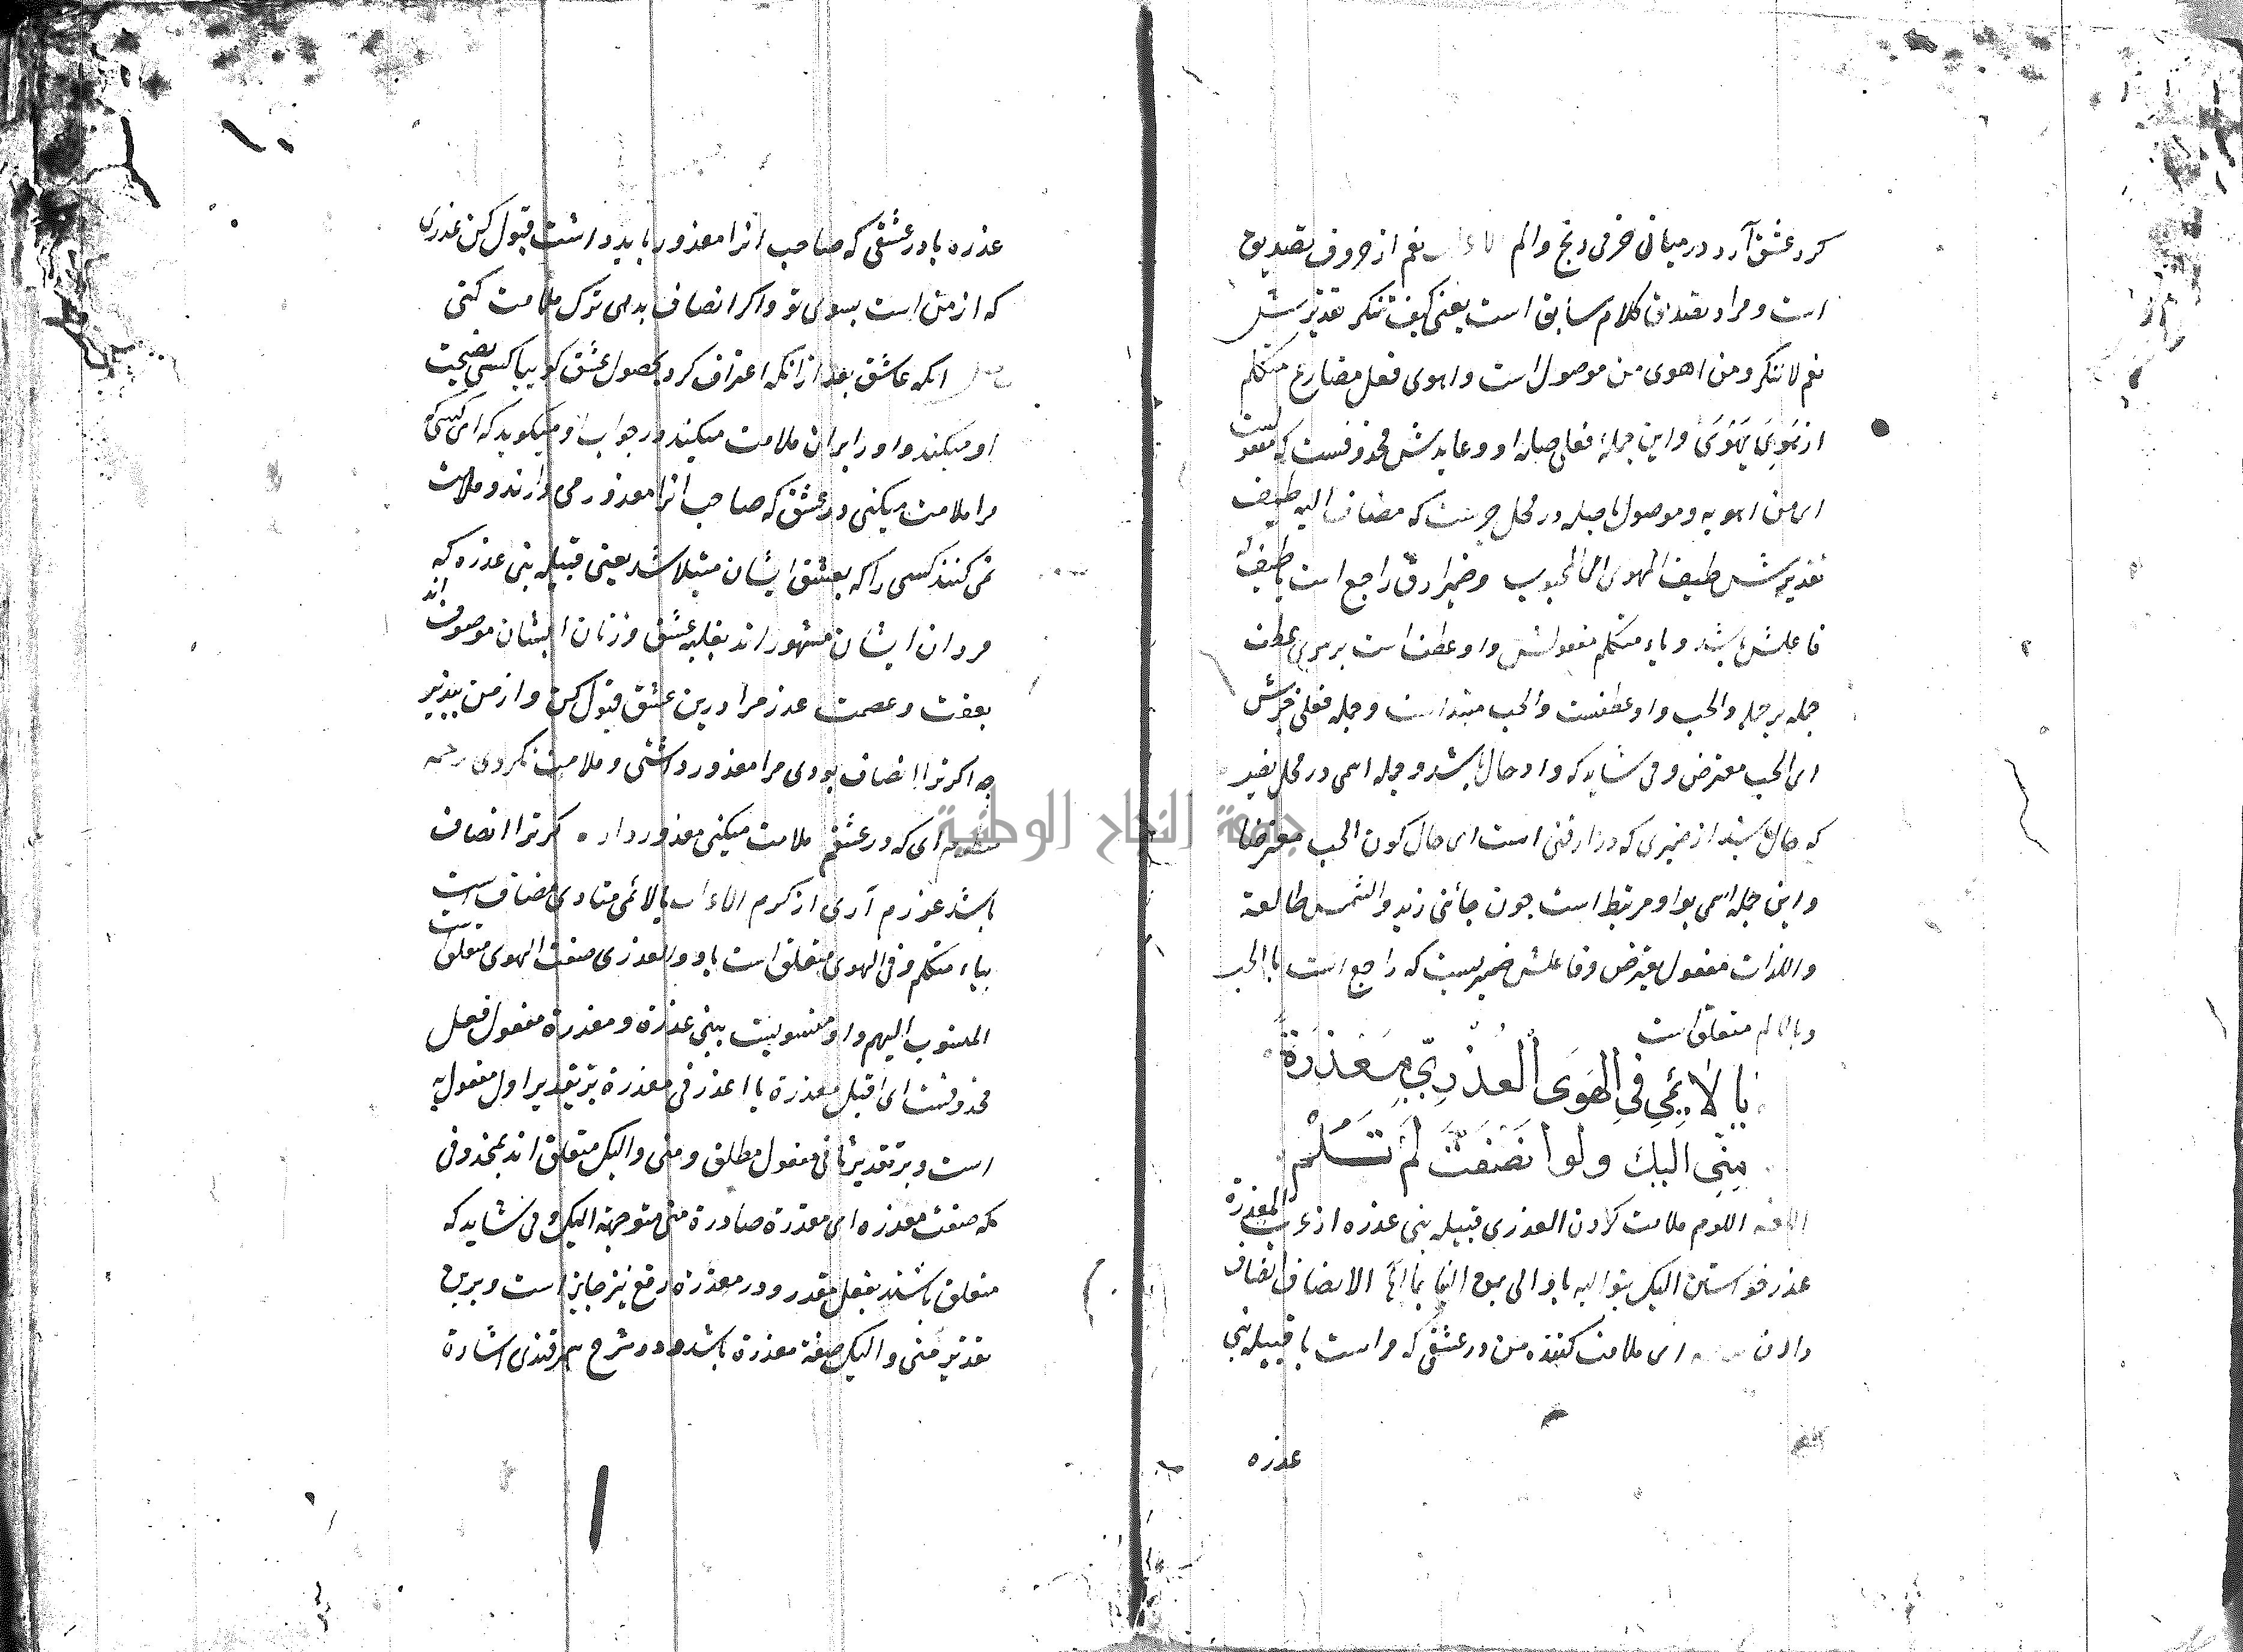 کرد عشق آرد در میان خرمی رنج والم نعم از حروف تصدیق
است و مراد تصدیق کلام سابق است یعنی کیف تنکر تقدیرش
نعم لا تنکر و من اهوی من موصول است و اهوی فعل مضارع متکلم
از هَوِیَ یَهْوَی و این جمله فعلی صله او و عایدش محذوفست که مفعولست
ای من اهویه و موصول باصله در محل جرست که مضاف الیه طیف
تقدیرش طیف المهوی ای المحبوب و ضمیر ارق راجع است باطیف
فاعلش باشد و یاء متکلم مفعولش واو عطف است بر سری عطف
جمله بر جمله والحب واو عطفست والحب مبتداست و جمله فعلی خبرش
ای الحب معترض و می شاید که واو حال باشد و جمله اسمی در محل نصب
که حال باشد از ضمیری که در ارقنی است ای حال کون الحب معترضا
و این جمله اسمی بواو مرتبط است چون جائنی زید والشمس طالعة
واللذات مفعول یعترض و فاعلش ضمیریست که راجع است با الحب
وبالالم متعلق است
یا لائِمِی فِی الهَوَی العُذْرِیِّ مَعْذِرَةً
مِنِّی الیك ولو انصَفْتَ لَمْ تَلُمِ
اللغه اللوم ملامت کردن العذری قبیله بنی عذره از عرب المعذرة
عذر خواستن الیک الانصاف انصاف
دادن ای ملامت کننده من در عشقی که مراست با قبیله بنی
عذره
عذره یا در عشقی که صاحب انرا معذور باید داشت قبول کن عذری
که از من است بسوی تو و اکر انصاف بدهی ترک ملامت کنی
انکه عاشق بعد از انکه اعتراف کرد بحصول عشق کوییا کسی نصیحت
او میکند و او را بران ملامت میکند در جواب او میکوید که ای کسی که
مرا ملامت میکنی در عشق که صاحب انرا معذور می دارند و ملامت
نمی کنند کسی را که بعشق ایشان مبتلا شد یعنی قبیله بنی عذره که
مردان ایشان مشهور اند بغلبه عشق و زنان ایشان موصوف اند
بعفت و عصمت عذر مرا درین عشق قبول کن و از من بپذیر
چه اکر ترا انصاف بودی مرا معذور داشتی و ملامت نکردی ترجمه
منظومه ای که در عشقم ملامت میکنی معذور دار ه کر ترا انصاف
باشد عذرم آری از کرم الاعراب یا لائمی منادی مضاف است
بیاء متکلم و فی الهوی متعلق است باو والعذری صفت الهوی متعلق است
المنسوب الیهم و او منسوبیت ببنی عذرة و معذرة مفعول فعل
محذوفست ای اقبل معذرة یا اعذر فی معذرة بر تقدیر اول مفعول به
است و بر تقدیر ثانی مفعول مطلق و منی و الیک متعلق اند بمحذوفی
که صفت معذره ای معذرة صادرة منی متوجهة الیک و می شاید که
متعلق باشند بفعل مقدر و در معذرة رفع نیز جایز است و برین
تقدیر منی و الیک صفة معذرة باشد و در شرح سمرقندی اشارة
جامعة النجاح الوطنية